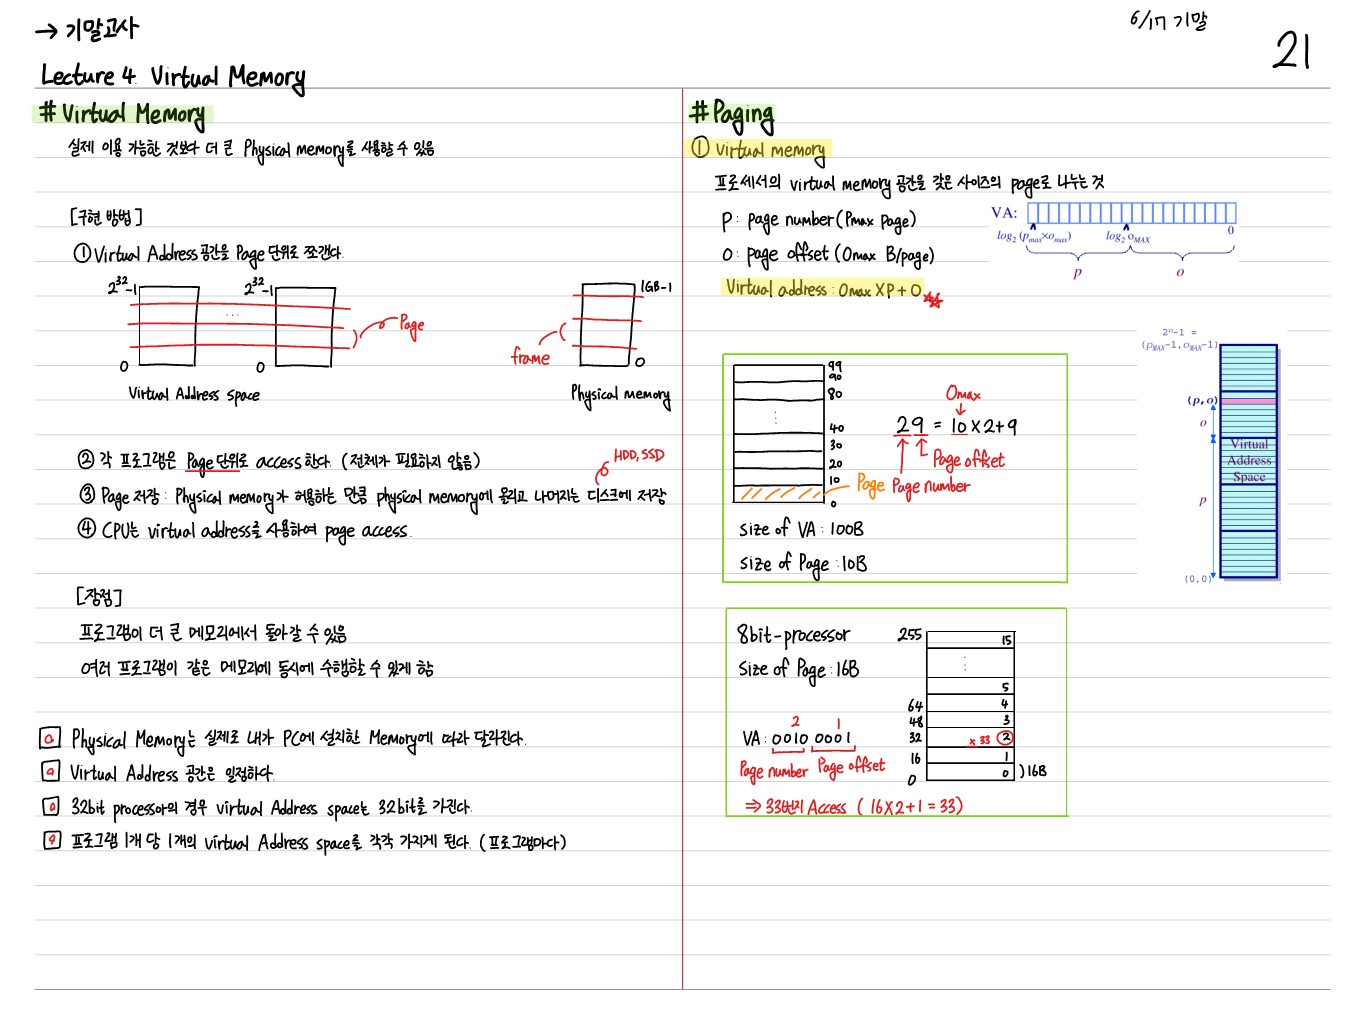 → 기말고사
6/17 기말
21
Lecture 4. Virtual Memory
# Virtual Memory
실제 이용 가능한 것보다 더 큰 Physical memory를 사용할 수 있음
[구현 방법]
① Virtual Address 공간을 Page 단위로 쪼갠다.
2³²-1
2³²-1
1GB-1
...
Page
frame
0
0
0
Virtual Address space
Physical memory
② 각 프로그램은 Page 단위로 access 한다. (전체가 필요하지 않음)
HDD, SSD
③ Page 저장 : Physical memory가 허용하는 만큼 physical memory에 올리고 나머지는 디스크에 저장
④ CPU는 virtual address를 사용하여 page access.
[장점]
프로그램이 더 큰 메모리에서 돌아갈 수 있음
여러 프로그램이 같은 메모리에 동시에 수행할 수 있게 함
Physical Memory는 실제로 내가 PC에 설치한 Memory에 따라 달라진다.
Virtual Address 공간은 일정하다.
32bit processor의 경우 virtual Address space는 32bit를 가진다.
프로그램 1개 당 1개의 virtual Address space를 각각 가지게 된다. (프로그램마다)
# Paging
① Virtual memory
프로세서의 virtual memory 공간을 같은 사이즈의 page로 나누는 것
P : page number (Pmax page)
O : page offset (Omax B/page)
Virtual address : Omax X P + O
VA:
log₂ (pmax×omax)
log₂ oMAX
0
p
o
99
90
80
⋮
40
30
20
10
0
Page
Omax
29 = 10 X 2 + 9
Page offset
Page number
Size of VA : 100B
Size of Page : 10B
2ⁿ-1 =
(pMAX-1, oMAX-1)
(p,o)
o
Virtual
Address
Space
p
(0,0)
8bit-processor
Size of Page : 16B
255
15
⋮
5
64
4
48
3
32
x 33 ②
16
1
0
0
)16B
2 1
VA : 0010 0001
Page number Page offset
⇒ 33번지 Access ( 16 X 2 + 1 = 33)